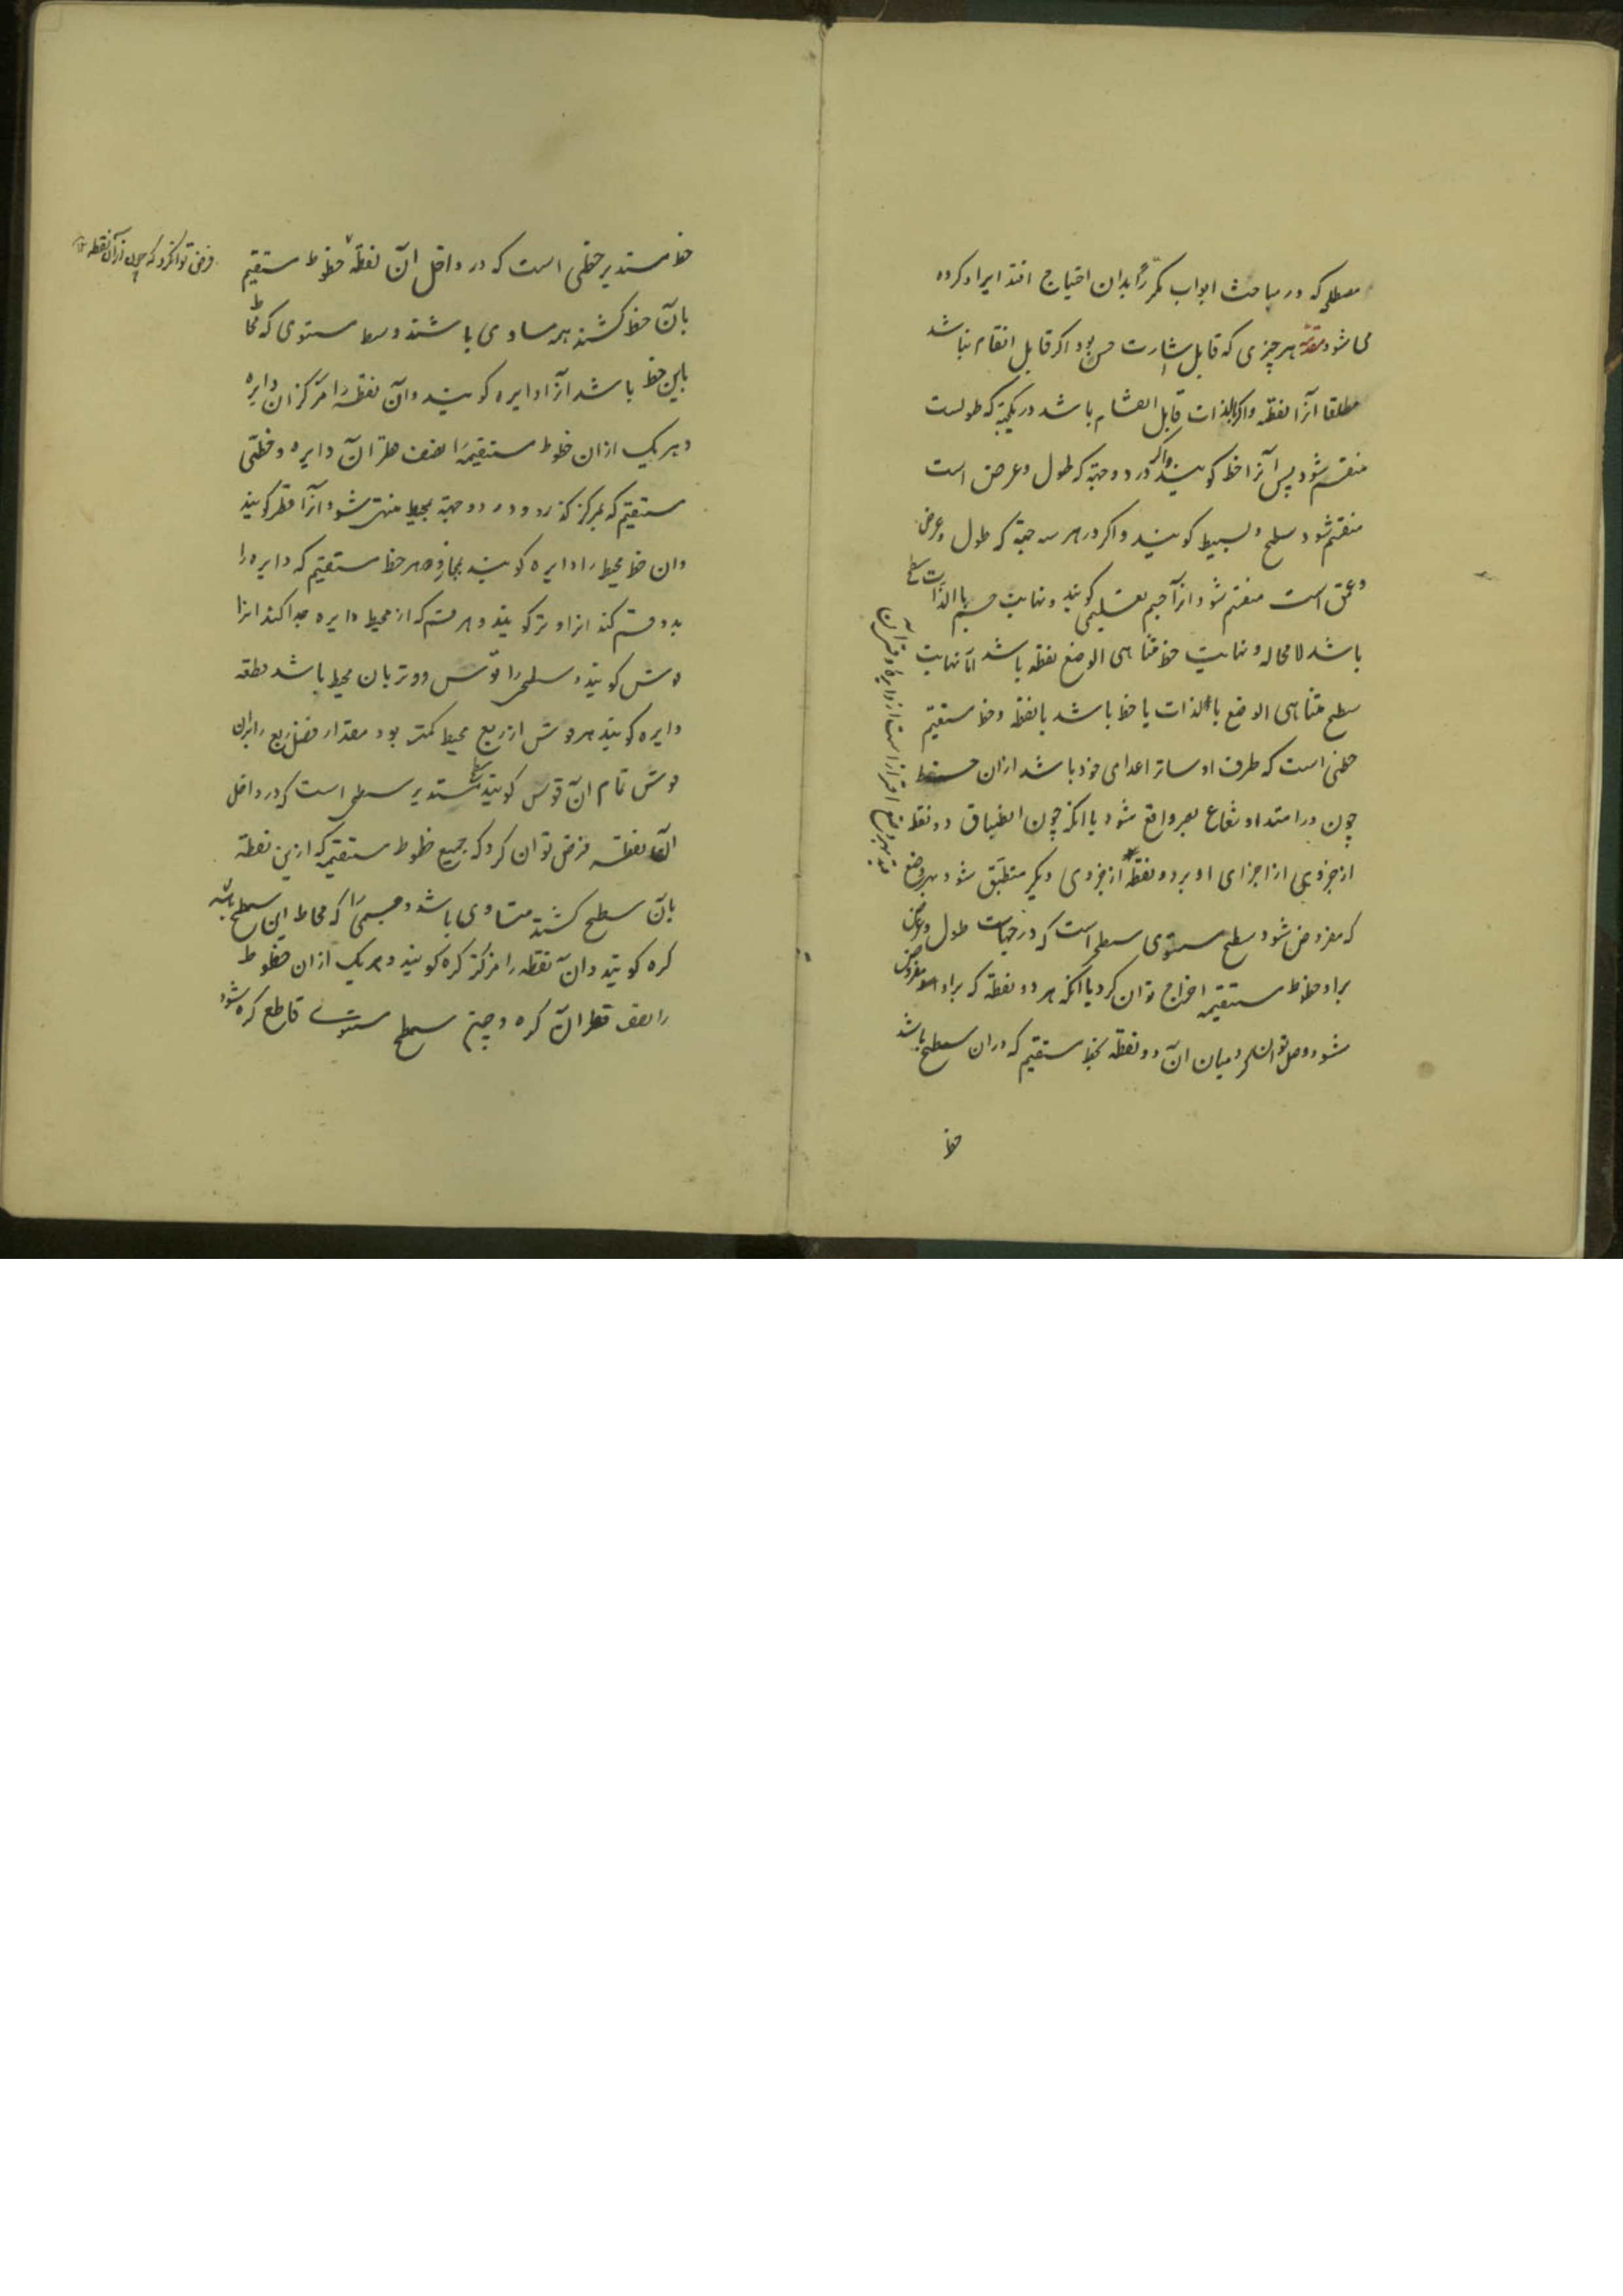 مصطلحی که در مباحث ابواب مکرراً بدان احتیاج افتد ایراد کرده
می شود مقدمه هر چیزی که قابل اشارت حسی بود اگر قابل انقسام نباشد
مطلقا آنرا نقطه و اگر بالذات قابل انقسام باشد در یکجهة که طولست
منقسم شود پس آنرا خط گویند و اگر در دو جهة که طول و عرض است
منقسم شود سطح و بسیط گویند و اگر در هر سه جهة که طول و عرض
و عمق است منقسم شود انرا جسم تعلیمی گویند و نهایت جسم بالذات سطح
باشد لا محاله و نهایت خط متناهی الوضع نقطه باشد اما نهایت
سطح متناهی الوضع بالذات یا خط باشد یا نقطه و خط مستقیم
خطی است که طرف او ساتر اعدای خود باشد ازان
چون در امتداد شعاع بصر واقع شود یا انکه چون انطباق دو نقطه
از جزوی از اجزای او بر دو نقطه از جزوی دیگر منطبق شود بهر وضع
که مفروض شود سطح مستوی سطحی است که در جهات طول و عرض
براو خطوط مستقیمه اخراج توان کرد یا انکه هر دو نقطه که براو مفروض
شود وصل توان کرد میان ان دو نقطه بخط مستقیم که دران سطح باشد
قید بهر وضع احتراز است از دایره و قوس آن
خط
خط مستدیر خطی است که در داخل ان نقطه خطوط مستقیم
فرض توان کرد که چون از آن نقطه
بان خط کشند همه مساوی باشند و سطح مستوی که محاط
باین خط باشد آنرا دایره گویند و آن نقطه را مرکز ان دایره
و هر یک ازان خطوط مستقیمه را نصف قطر آن دایره و خطی
مستقیم که بمرکز گذرد و در دو جهة بمحیط منتهی شود آنرا قطر گویند
و ان خط محیط را دایره گویند بمجاز و هر خط مستقیم که دایره را
بدو قسم کند انرا وتر گویند و هر قسم که از محیط دایره جدا کند انرا
قوس گویند و سطحی را که قوس و وتر بان محیط باشد قطعه
دایره گویند هر قوس از ربع محیط کمتر بود مقدار فضل ربع را بران
قوس تمام ان قوس گویند سطح مستدیر سطحی است که در داخل
آن نقطه فرض توان کرد که جمیع خطوط مستقیمه که ازین نقطه
بان سطح کشند متساوی باشد و جسمی را که محاط این سطح باشد
کره گویند و ان نقطه را مرکز کره گویند و هر یک ازان خطوط
را نصف قطر ان کره و چون سطح مستوی قاطع کره شود